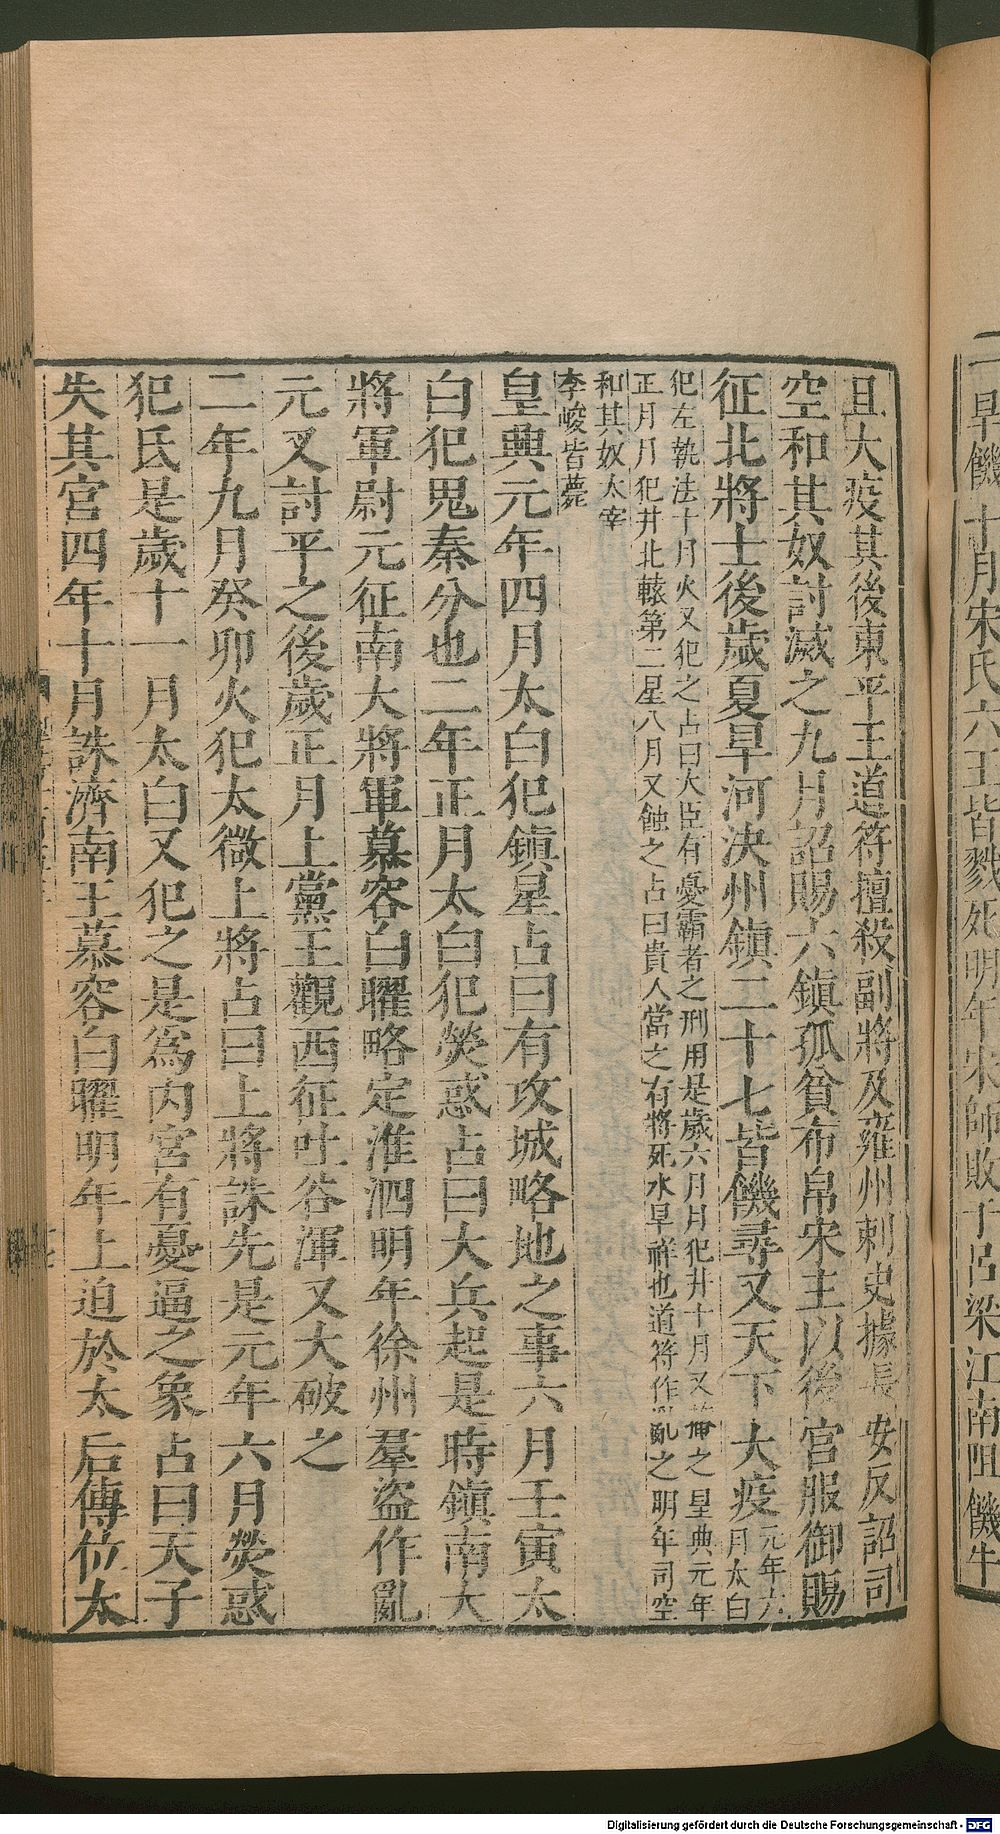 一旱饑十月宋氏六王皆戮死明年宋師敗于呂梁江南阻饑牛
且大疫其後東平王道符擅殺副將及雍州刺史據長安反詔司
空和其奴討滅之九月詔賜六鎮孤貧布帛宋主以後宮服御賜
征北將士後歲夏旱河決州鎮二十七皆饑尋又天下大疫
元年六
月太白
犯左執法十月火又犯之占曰大臣有憂霸者之刑用是歲六月月犯井十月又
之皇興元年
正月月犯井北轅第二星八月又蝕之占曰貴人當之有將死水旱祥也道符作亂之明年司空
和其奴太宰
李峻皆薨
皇興元年四月太白犯鎮星占曰有攻城略地之事六月壬寅太
白犯鬼秦分也二年正月太白犯熒惑占曰大兵起是時鎮南大
將軍尉元征南大將軍慕容白曜略定淮泗明年徐州羣盜作亂
元又討平之後歲正月上黨王觀西征吐谷渾又大破之
二年九月癸卯火犯太微上將占曰上將誅先是元年六月熒惑
犯氐是歲十一月太白又犯之是為內宮有憂逼之象占曰天子
失其宮四年十月誅濟南王慕容白曜明年上迫於太后傳位太
Digitalisierung gefördert durch die Deutsche Forschungsgemeinschaft - DFG